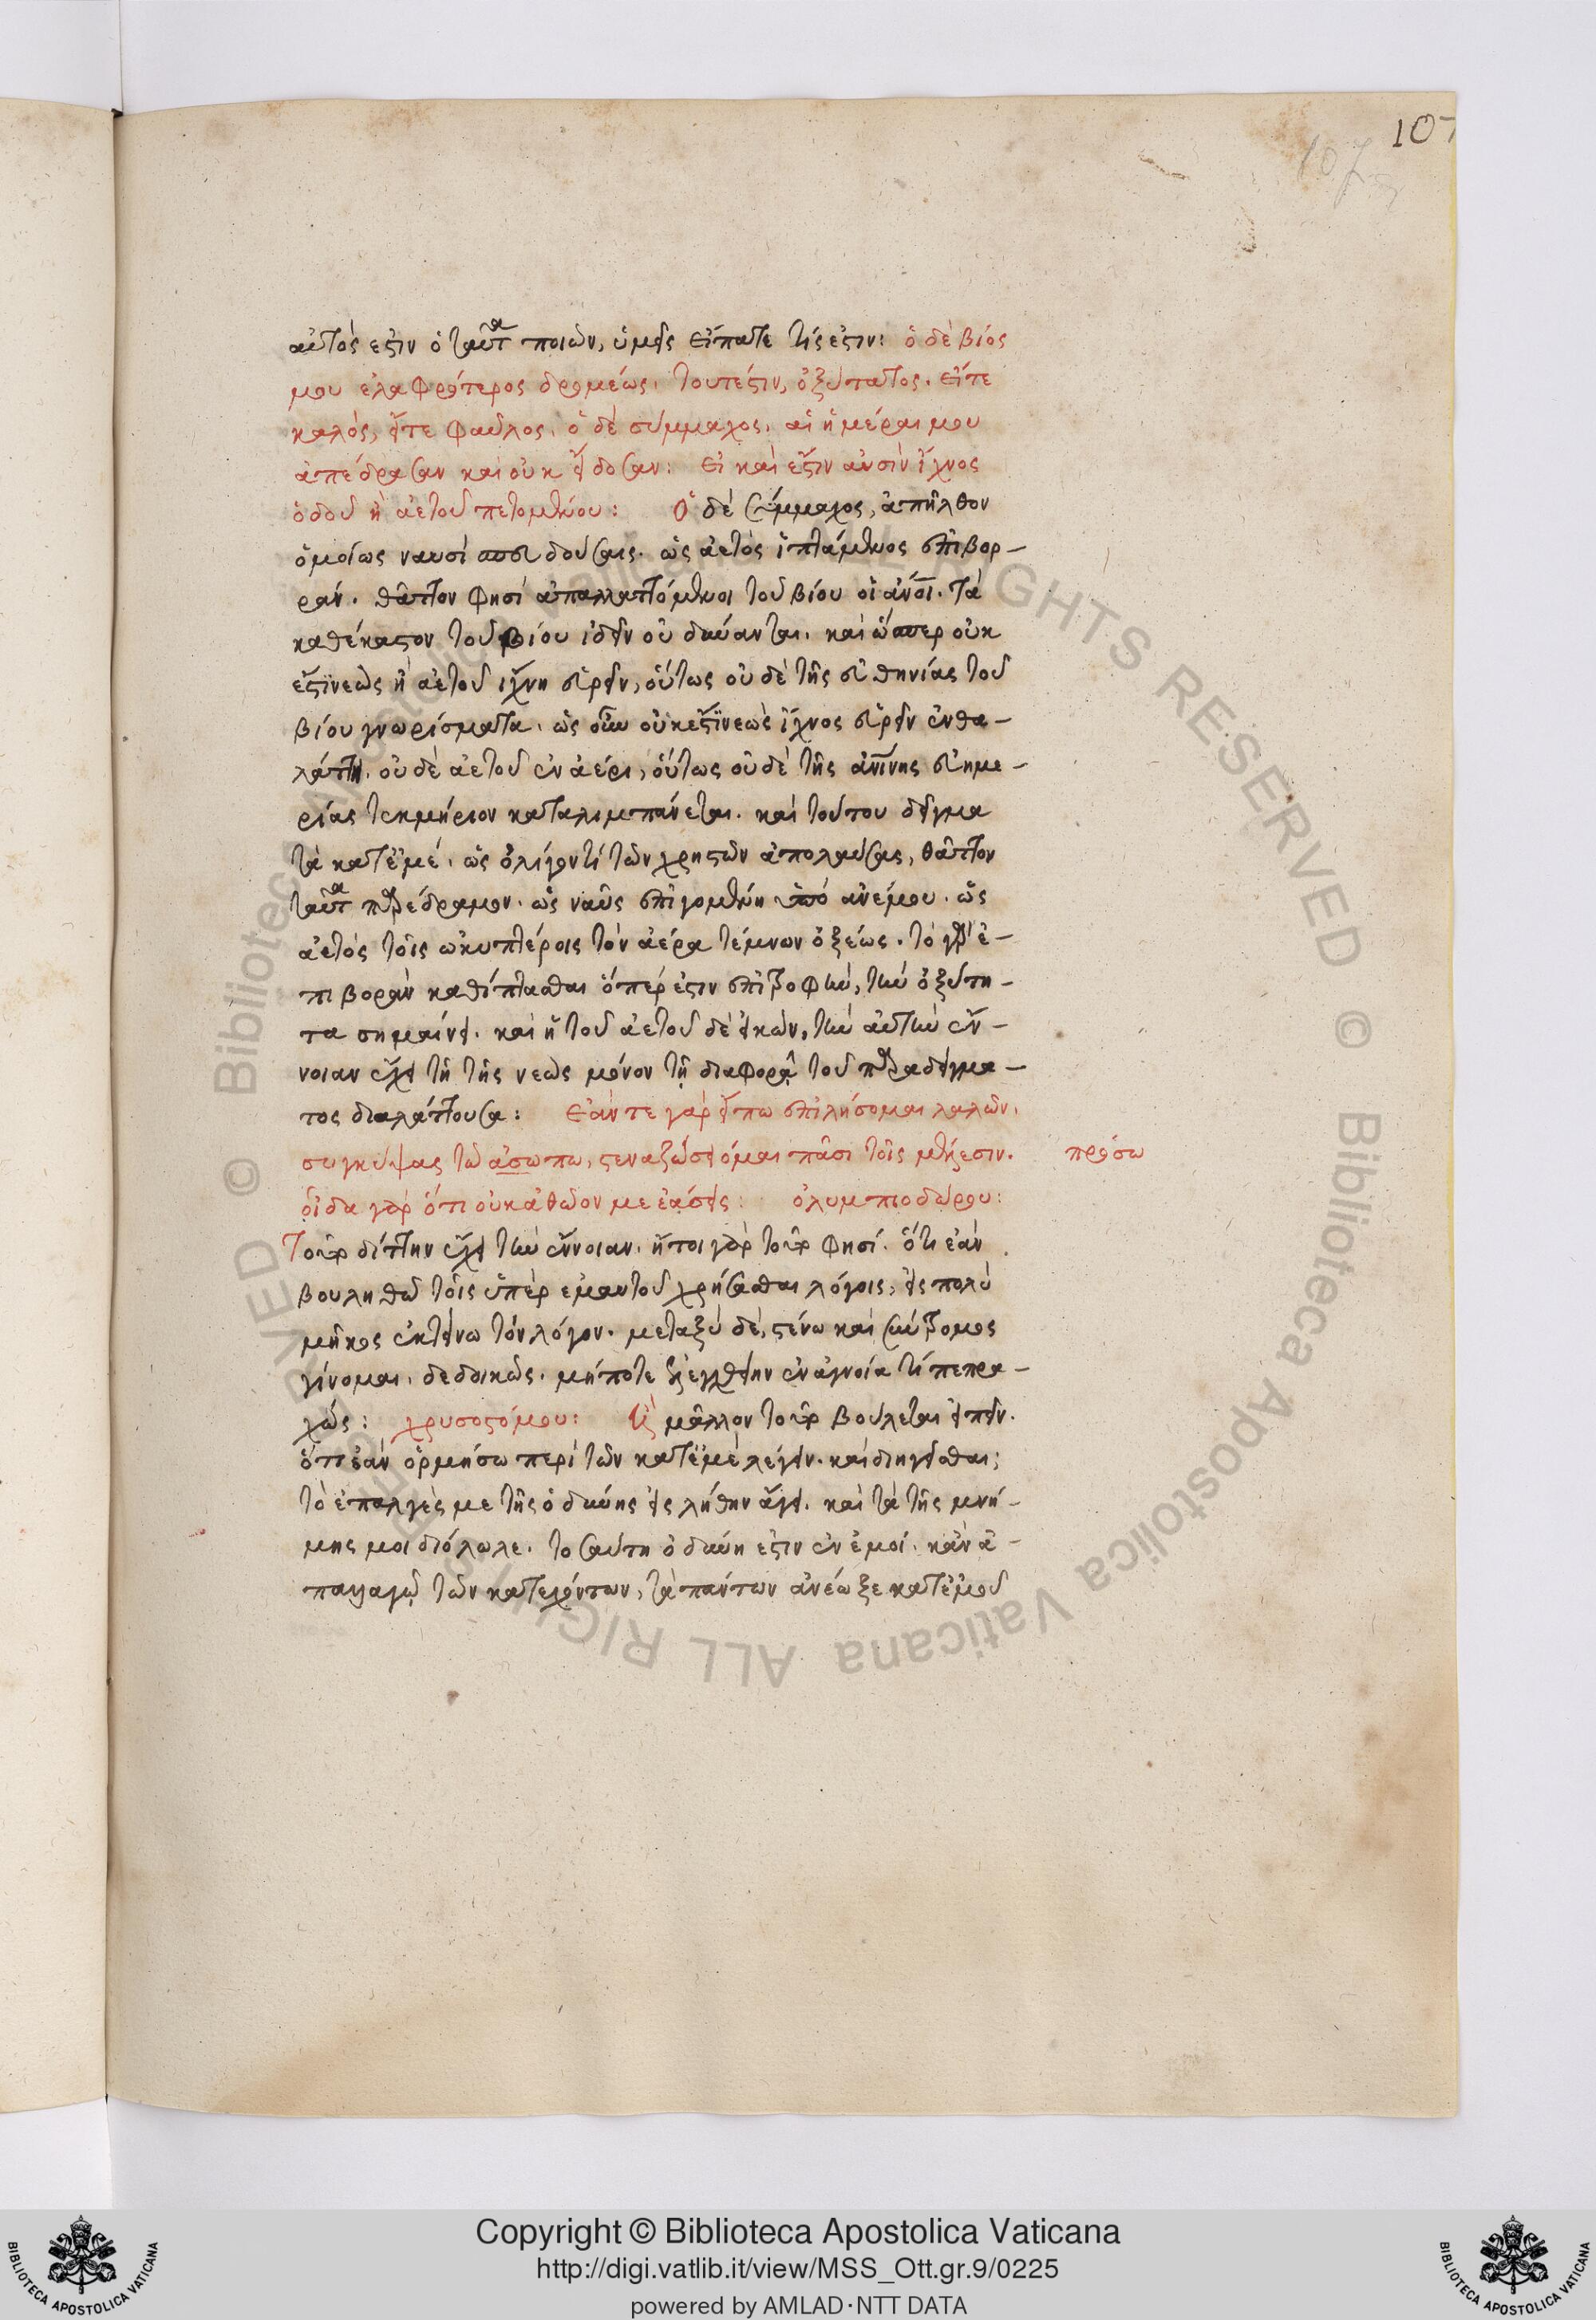 107
αὐτός ἐστιν ὁ ταῦτα ποιῶν, ὑμεῖς εἴπατε τίς ἐστιν: ὁ δὲ βίος
μου ἐλαφρότερος δρομέως, τουτέστιν, ὀξύτατος. εἴτε
καλὸς, εἴτε φαῦλος. ὁ δὲ σύμμαχος, αἱ ἡμέραι μου
ἀπέδρασαν καὶ οὐκ εἴδοσαν: εἰ καὶ ἔστιν ναυσὶν ἴχνος
ὁδοῦ ἢ ἀετοῦ πετομένου: Ὁ δὲ Σύμμαχος, ἀπῆλθον
ὁμοίως ναυσὶ σπευδούσαις. ὡς ἀετὸς ἱπτάμενος ἐπὶ βορ-
ράν. θᾶττον φησὶ ἀπαλλαττόμενοι τοῦ βίου οἱ ἄνοι. τὰ
καθέκαστον τοῦ βίου ἰδεῖν οὐ δύνανται. καὶ ὥσπερ οὐκ
ἔστι νεὼς ἢ ἀετοῦ ἴχνη εὑρεῖν, οὕτως οὐδὲ τῆς εὐθηνίας τοῦ
βίου γνωρίσματα. ὡς οὖν οὐκ ἔστι νεὼς ἴχνος εὑρεῖν ἐν θα-
λάττῃ. οὐδὲ ἀετοῦ ἐν ἀέρι, οὕτως οὐδὲ τῆς ἀνίνης εὐημε-
ρίας τεκμήριον καταλιμπάνεται. καὶ τούτου δεῖγμα
τὰ κατ' ἐμέ. ὡς ὀλίγον τί τῶν χρηστῶν ἀπολαύσας, θᾶττον
ταῦτα παρέδραμον. ὡς ναῦς ἐπειγομένη ὑπὸ ἀνέμου. ὡς
ἀετὸς τοῖς ὠκυπτέροις τὸν ἀέρα τέμνων ὀξέως. τὸ γὰρ ἐ-
πὶ βορὰν καθίπτασθαι ὅπερ ἐστὶν ἐπὶ τροφὴν, τὴν ὀξύτη-
τα σημαίνει. καὶ ἡ τοῦ ἀετοῦ δὲ εἰκὼν, τὴν αὐτὴν ἔν-
νοιαν ἔχει τῇ τῆς νεὼς μόνον τῇ διαφορᾷ τοῦ παραδείγμα-
τος διαλάττουσα: Ἐάν τε γὰρ εἴπω ἐπιλήσομαι λαλῶν.
συγκύψας τῷ ἀσώπω, στενάζω σείομαι πᾶσι τοῖς μέλεσιν. προσω
οἶδα γὰρ ὅτι οὐκ ἀθῶόν με ἐάσεις: ὀλυμπιοδώρου:
Τοῦτο δίττην ἔχει τὴν ἔννοιαν. ἤτοι γὰρ τοῦτο φησί. ὅτι ἐὰν
βουληθῶ τοῖς ὑπὲρ ἐμαυτοῦ χρήσασθαι λόγοις, εἰς πολὺ
μῆκος ἐκτείνω τὸν λόγον. μεταξὺ δὲ, στένω καὶ σύντρομος
γίνομαι. δεδοικὼς. μήποτε ἐξελεγχθείην ἐν ἀγνοίᾳ τί πεπρα-
χώς: χρυσοστόμου: Ἢ μᾶλλον τοῦτο βούλεται εἰπεῖν.
ὅτι ἐὰν ὁρμήσω περὶ τῶν κατ' ἐμὲ λέγειν. καὶ διηγεῖσθαι;
τὸ ἐπαλγές με τῆς ὀδύνης εἰς λήθην ἄγει. καὶ τὰ τῆς μνή-
μης μοι διόλωλε. τοσαύτη ὀδύνη ἐστὶν ἐν ἐμοί. κἂν ἀ-
παναγῶ τῶν κατεχόντων, τὰ πάντων ἀνέωξε κατ' ἐμοῦ
Copyright © Biblioteca Apostolica Vaticana
http://digi.vatlib.it/view/MSS_Ott.gr.9/0225
powered by AMLAD·NTT DATA